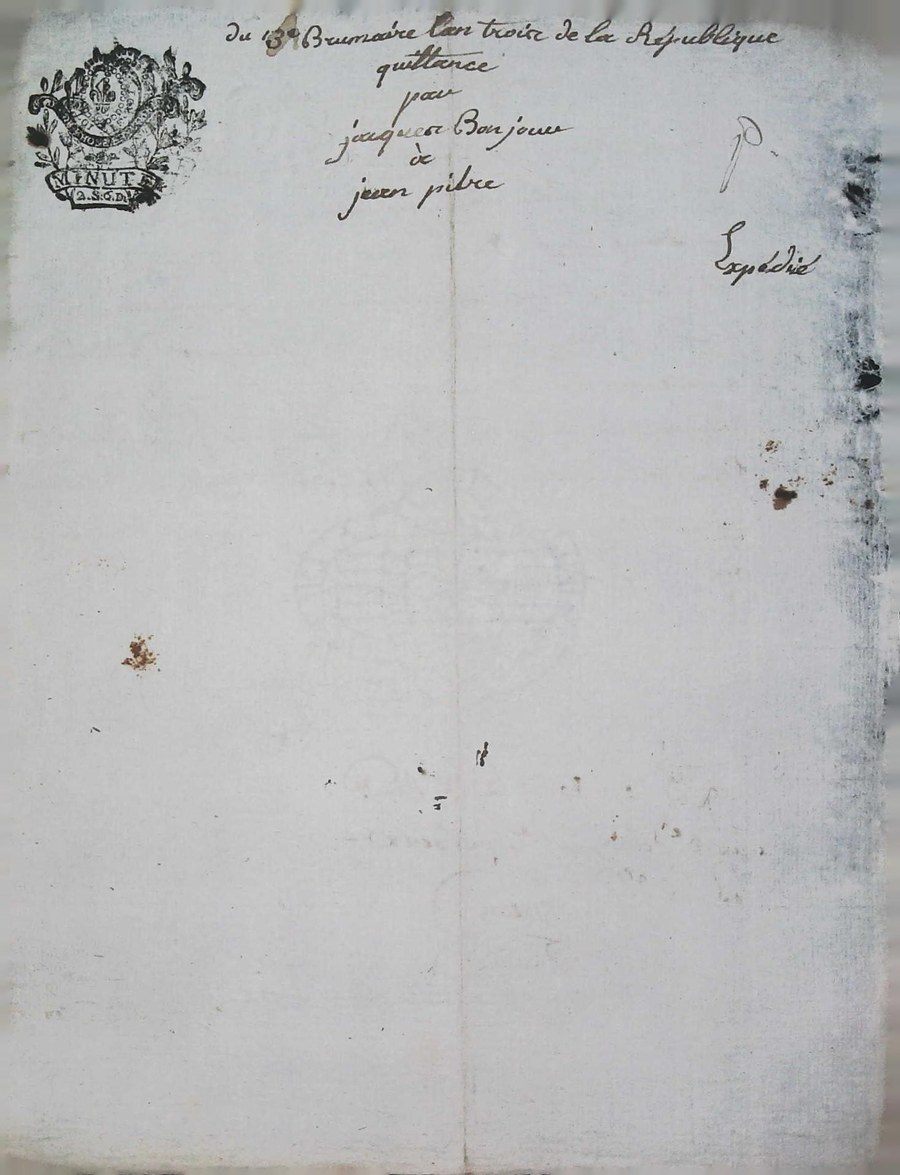 du 13e Brumaire l'an trois de la République
quittance
par
jacques Bonjour
à
jean pibre
Expédié
MINUTE
2.S.6.D.